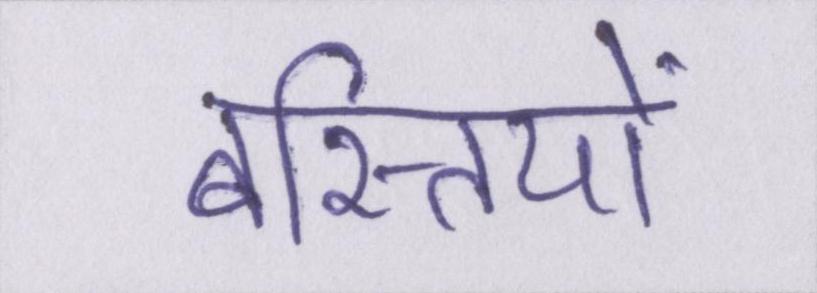 बस्तियों